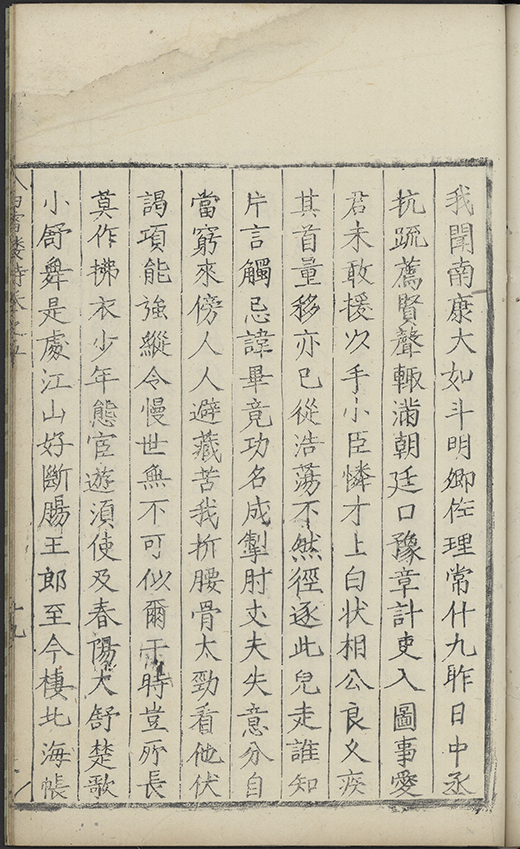 我聞南康大如斗明卿佐理常什九昨日中丞
抗疏薦賢聲輒滿朝廷口豫章計吏入圖事愛
君未敢援以手小臣憐才上白狀相公良久疾
其首量移亦已從浩蕩不然徑逐此兒走誰知
片言觸忌諱畢竟功名成掣肘丈夫失意分自
當窮來傍人人避藏苦我折腰骨太勁看他伏
謁項能強縱令慢世無不可似爾于時豈所長
莫作拂衣少年態宦遊須使及春陽大舒楚歌
小舒舞是處江山好斷腸王郎至今棲北海帳
白雪樓詩卷之五
十九